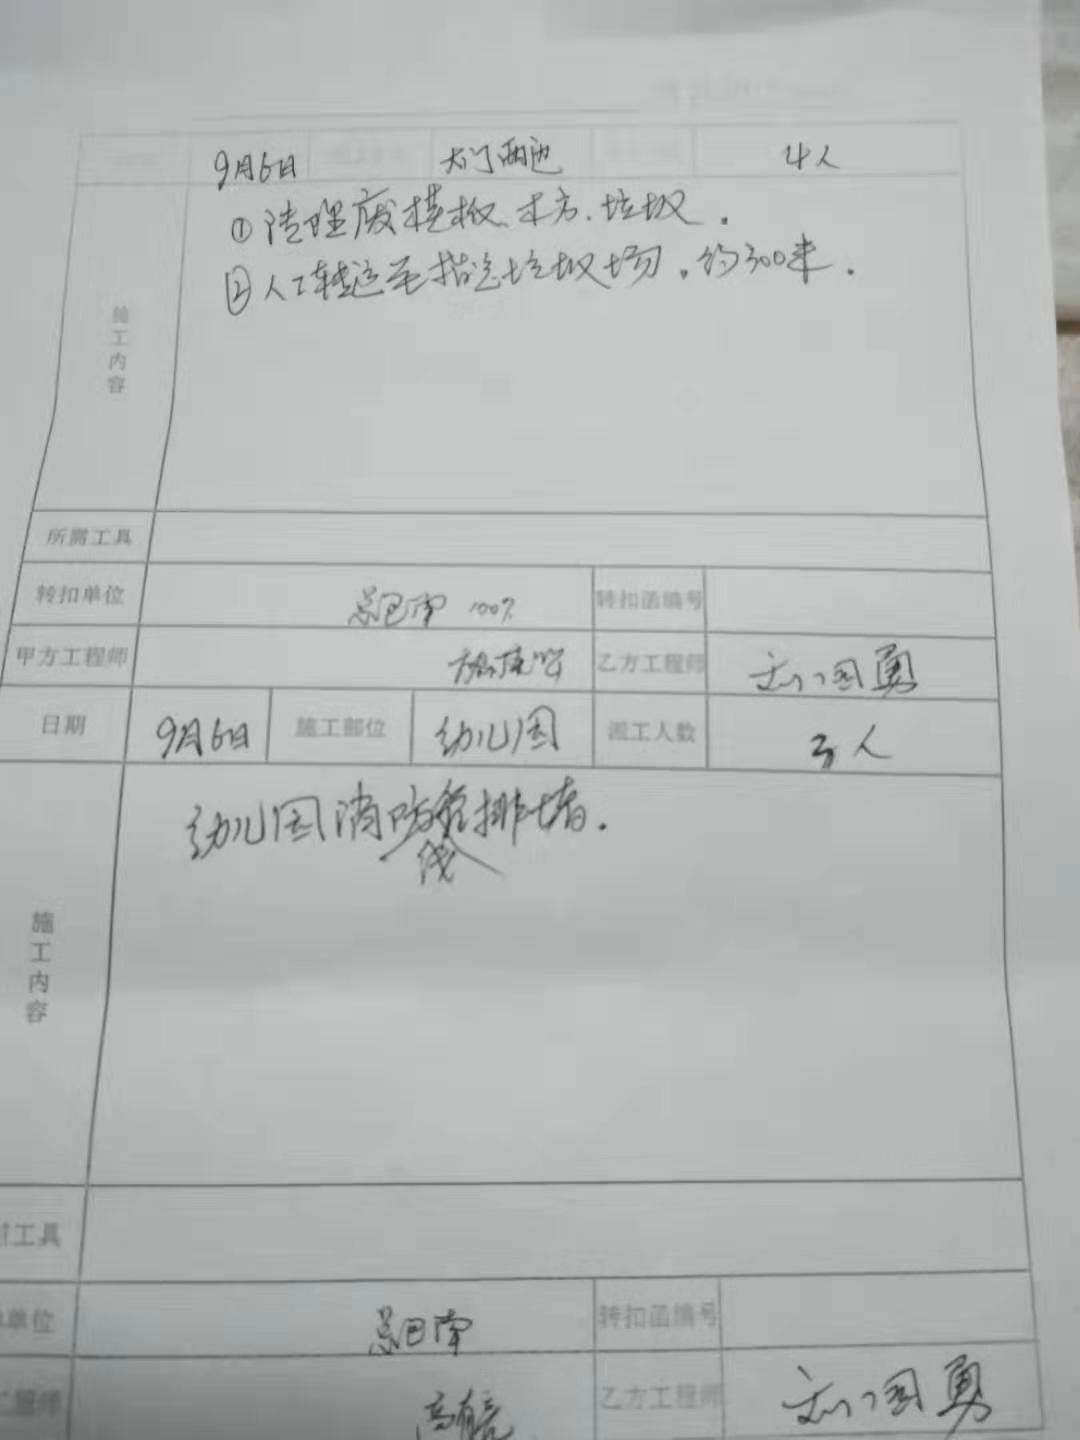 9月6日 大门两边 4人
①清理废模板、木方、垃圾。
②人工转运至指定垃圾场。约300米。
施工内容
所需工具
转扣单位 总包南 100% 转扣函编号
甲方工程师 乙方工程师 刘国勇
日期 9月6日 施工部位 幼儿园 派工人数 3人
幼儿园消防管排堵。
施工内容
工具
单位 总包南 转扣函编号
工程师 高有亮 乙方工程师 刘国勇